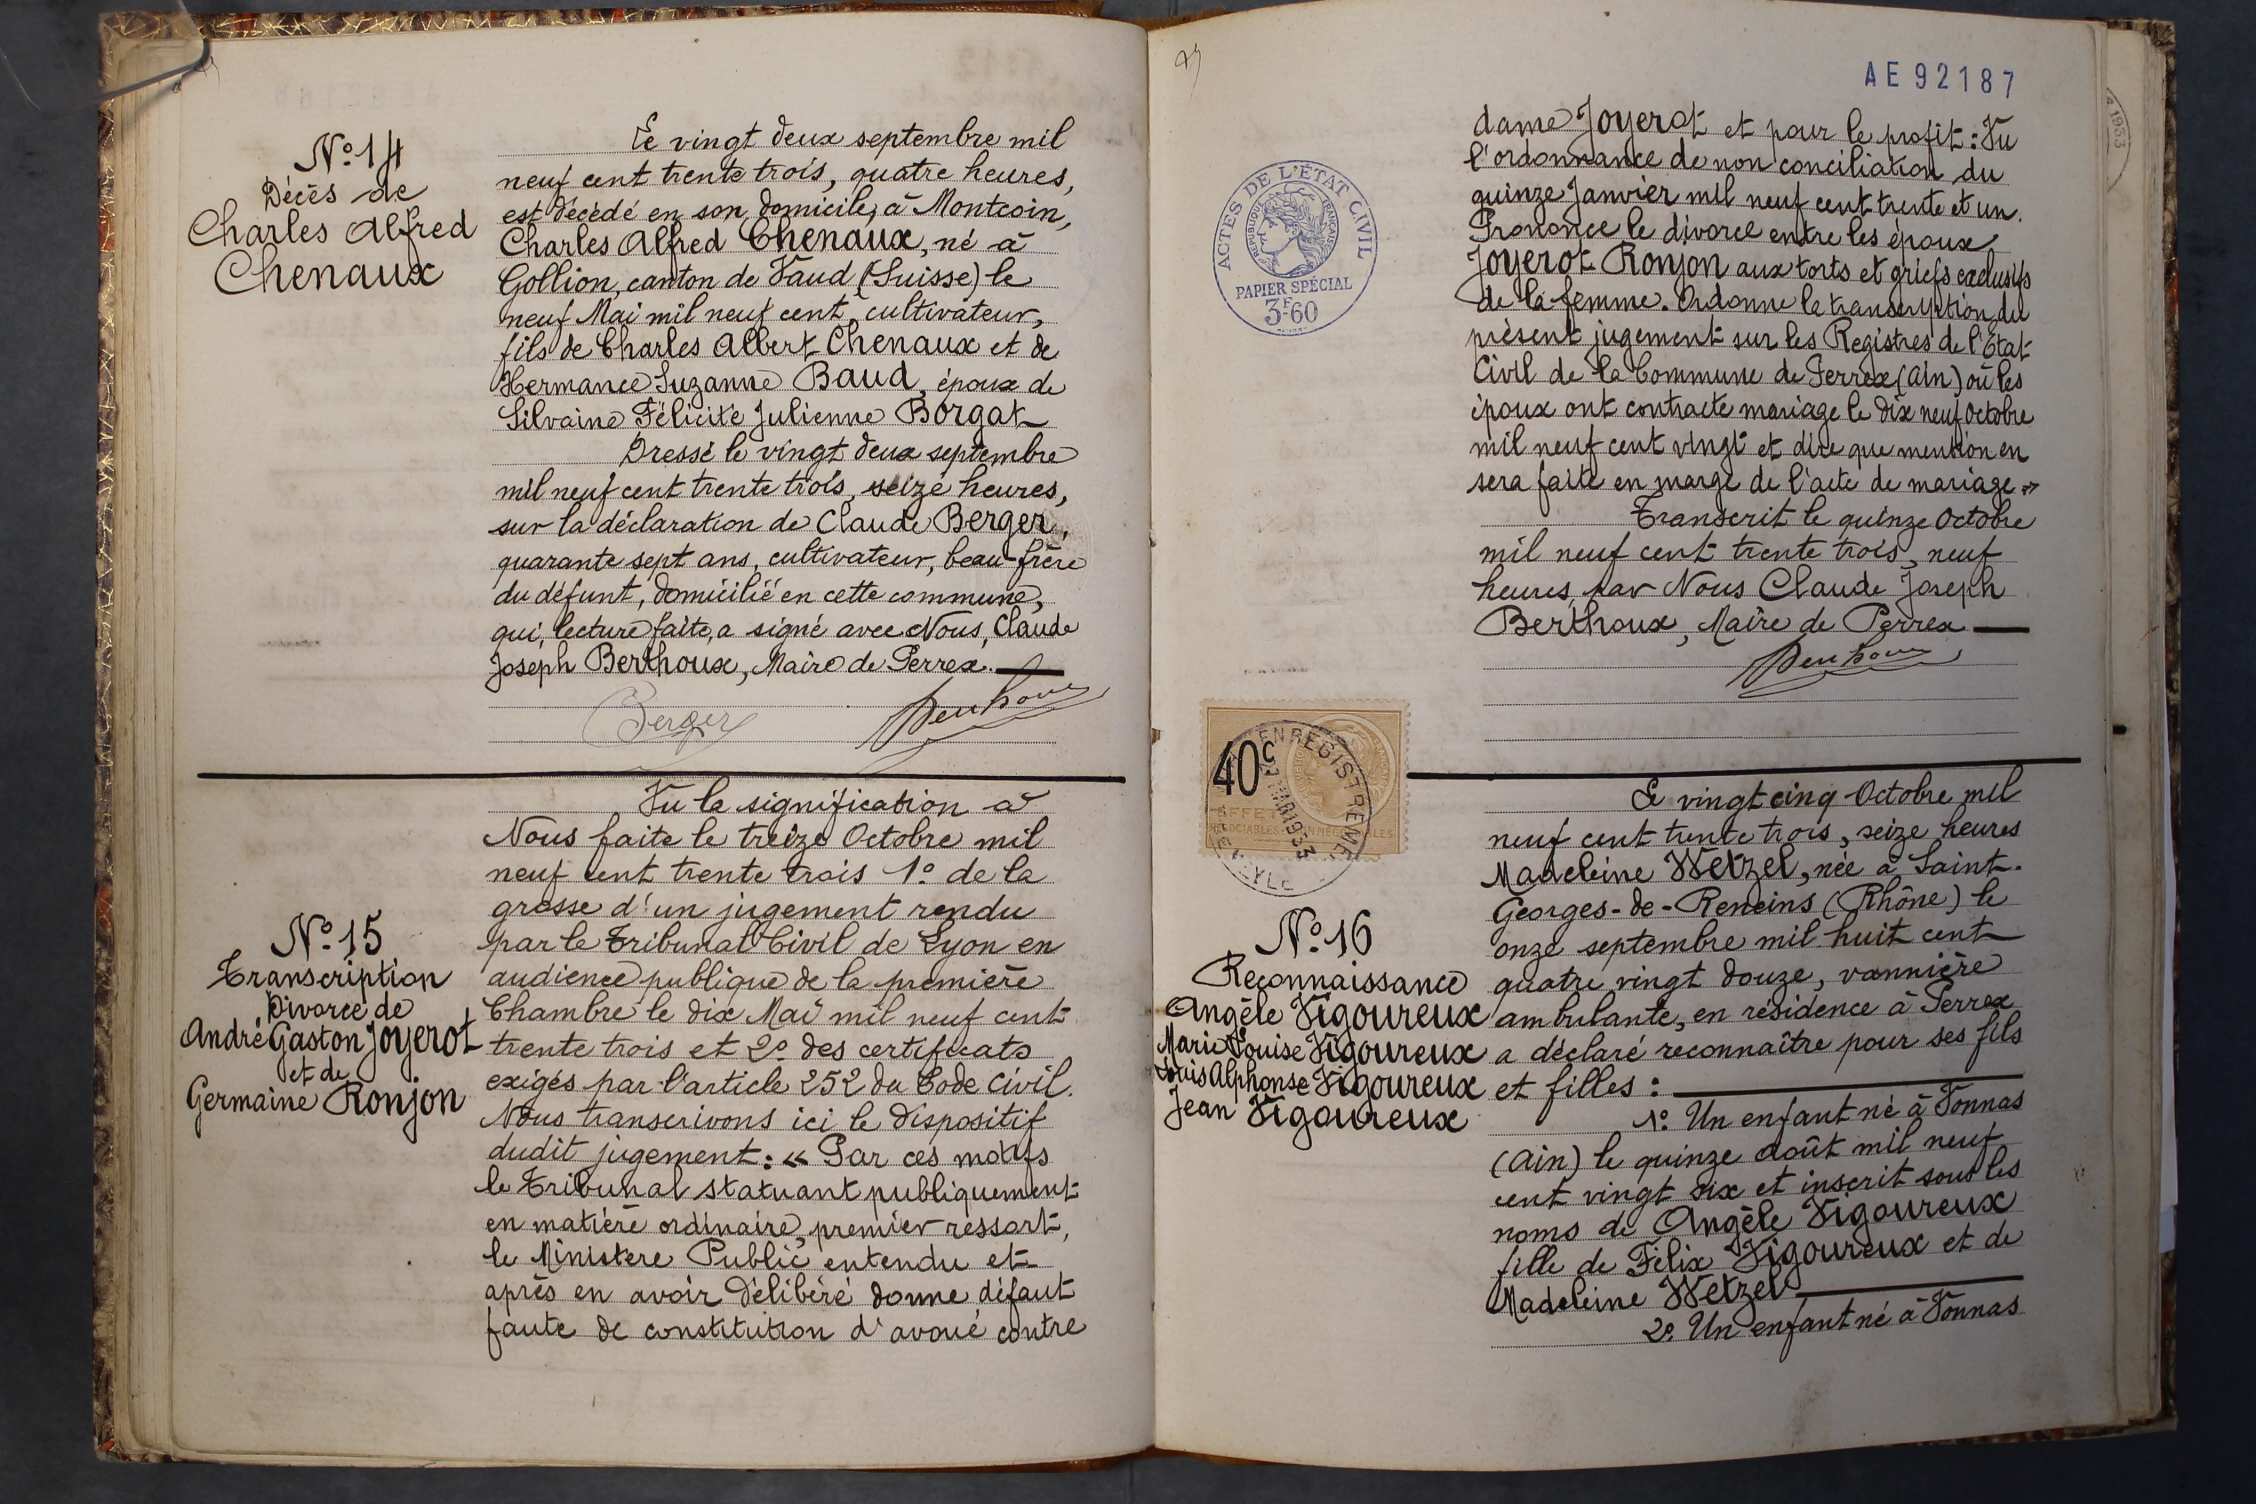 N° 14
Décès de
Charles Alfred
Chenaux
Le vingt deux septembre mil
neuf cent trente trois, quatre heures,
est décédé en son domicile, à Montcoin,
Charles Alfred Chenaux, né à
Gollion, canton de Vaud (Suisse) le
neuf Mai mil neuf cent, cultivateur,
fils de Charles Albert Chenaux et de
Hermance Suzanne Baud, époux de
Silvaine Félicité Julienne Borgat
Dressé le vingt deux septembre
mil neuf cent trente trois, seize heures,
sur la déclaration de Claude Berger,
quarante sept ans, cultivateur, beau-frère
du défunt, domicilié en cette commune,
qui, lecture faite, a signé avec Nous, Claude
Joseph Berthoux, Maire de Perrex.
Berger
Berthoux
N° 15
Transcription
Divorce de
André Gaston Joyerot
et de
Germaine Ronjon
Vu la signification à
Nous faite le treize Octobre mil
neuf cent trente trois 1° de la
grosse d'un jugement rendu
par le Tribunal Civil de Lyon en
audience publique de la première
Chambre le dix Mai mil neuf cent
trente trois et 2° des certificats
exigés par l'article 252 du Code Civil.
Nous transcrivons ici le dispositif
dudit jugement : « Par ces motifs
le Tribunal statuant publiquement
en matière ordinaire, premier ressort,
le Ministère Public entendu et
après en avoir délibéré donne défaut
faute de constitution d'avoué contre
AE 92187
dame Joyerot et pour le profit : Vu
l'ordonnance de non conciliation du
quinze Janvier mil neuf cent trente et un.
Prononce le divorce entre les époux
Joyerot Ronjon aux torts et griefs exclusifs
de la femme. Ordonne la transcription du
présent jugement sur les Registres de l'État
Civil de la Commune de Perrex (Ain) où les
époux ont contracté mariage le dix neuf Octobre
mil neuf cent vingt et dire que mention en
sera faite en marge de l'acte de mariage »
Transcrit le quinze Octobre
mil neuf cent trente trois, neuf
heures, par Nous Claude Joseph
Berthoux, Maire de Perrex
Berthoux
ACTES DE L'ÉTAT CIVIL
RÉPUBLIQUE FRANÇAISE
PAPIER SPÉCIAL
3F60
40c
ENREGISTREMENT
1933
N° 16
Reconnaissance
Angèle Vigoureux
Marie Louise Vigoureux
Louis Alphonse Vigoureux
Jean Vigoureux
Le vingt cinq Octobre mil
neuf cent trente trois, seize heures
Madeleine Wetzel, née à Saint-
Georges-de-Reneins (Rhône) le
onze septembre mil huit cent
quatre vingt douze, vannière
ambulante, en résidence à Perrex
a déclaré reconnaître pour ses fils
et filles :
1° Un enfant né à Vonnas
(Ain) le quinze Août mil neuf
cent vingt six et inscrit sous les
noms de Angèle Vigoureux
fille de Félix Vigoureux et de
Madeleine Wetzel
2° Un enfant né à Vonnas